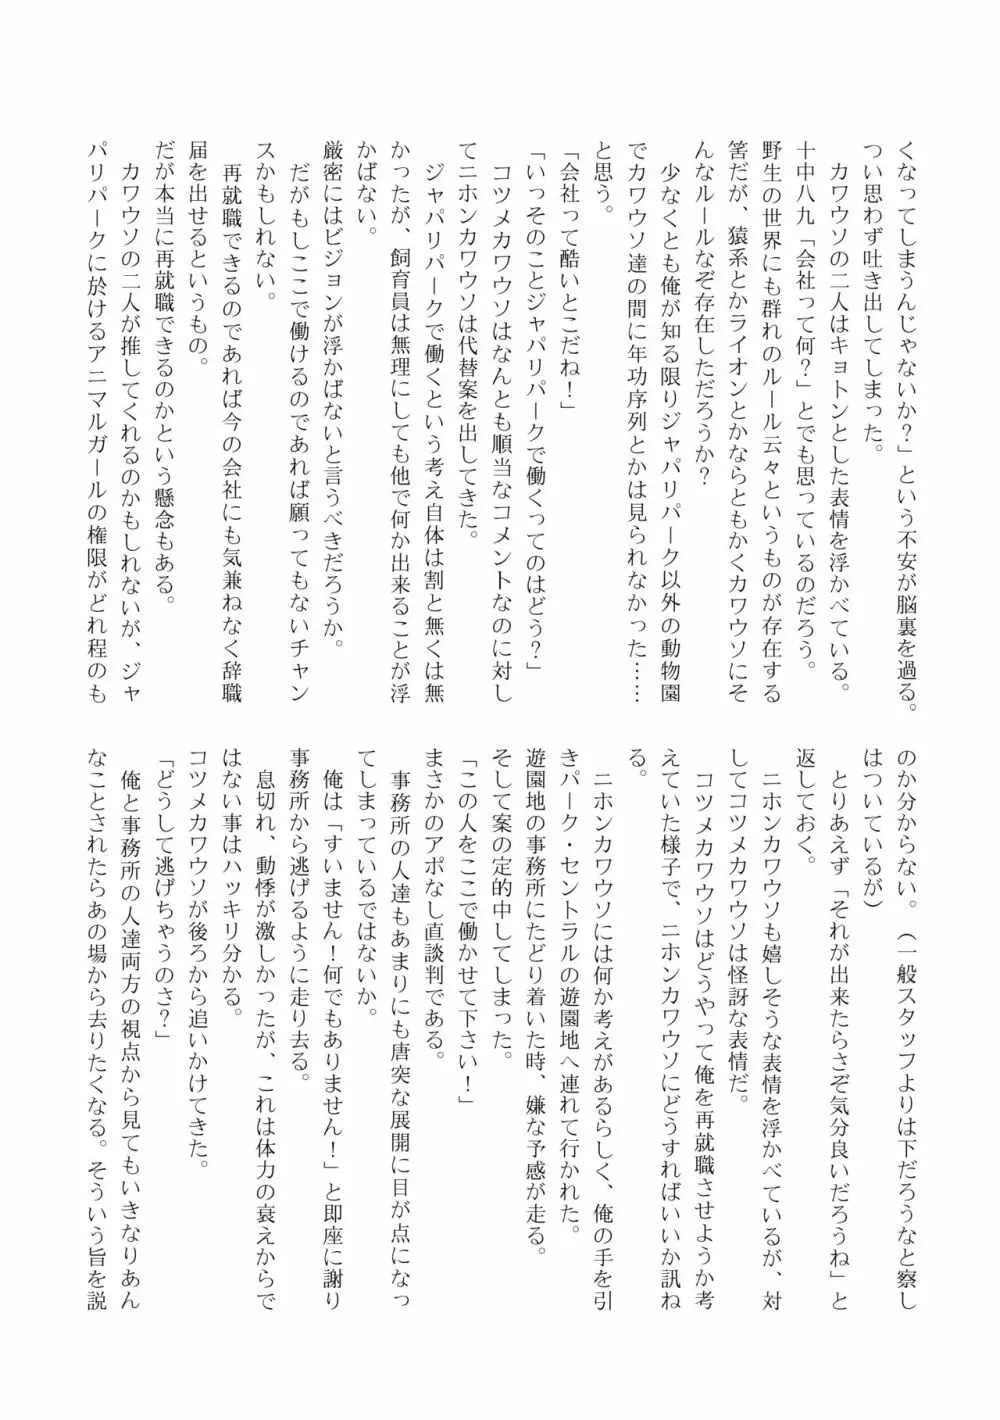 くなってしまうんじゃないか？」という不安が脳裏を過る。
つい思わず吐き出してしまった。
　カワウソの二人はキョトンとした表情を浮かべている。
十中八九「会社って何？」とでも思っているのだろう。
野生の世界にも群れのルール云々というものが存在する
筈だが、猿系とかライオンとかならともかくカワウソにそ
んなルールなぞ存在しただろうか？
　少なくとも俺が知る限りジャパリパーク以外の動物園
でカワウソ達の間に年功序列とかは見られなかった……
と思う。
「会社って酷いとこだね！」
「いっそのことジャパリパークで働くってのはどう？」
　コツメカワウソはなんとも順当なコメントなのに対し
てニホンカワウソは代替案を出してきた。
　ジャパリパークで働くという考え自体は割と無くは無
かったが、飼育員は無理にしても他で何か出来ることが浮
かばない。
厳密にはビジョンが浮かばないと言うべきだろうか。
　だがもしここで働けるのであれば願ってもないチャン
スかもしれない。
　再就職できるのであれば今の会社にも気兼ねなく辞職
届を出せるというもの。
だが本当に再就職できるのかという懸念もある。
　カワウソの二人が推してくれるのかもしれないが、ジャ
パリパークに於けるアニマルガールの権限がどれ程のも
のか分からない。（一般スタッフよりは下だろうなと察し
はついているが）
　とりあえず「それが出来たらさぞ気分良いだろうね」と
返しておく。
　ニホンカワウソも嬉しそうな表情を浮かべているが、対
してコツメカワウソは怪訝な表情だ。
　コツメカワウソはどうやって俺を再就職させようか考
えていた様子で、ニホンカワウソにどうすればいいか訊ね
る。
　ニホンカワウソには何か考えがあるらしく、俺の手を引
きパーク・セントラルの遊園地へ連れて行かれた。
遊園地の事務所にたどり着いた時、嫌な予感が走る。
そして案の定的中してしまった。
「この人をここで働かせて下さい！」
まさかのアポなし直談判である。
　事務所の人達もあまりにも唐突な展開に目が点になっ
てしまっているではないか。
　俺は「すいません！何でもありません！」と即座に謝り
事務所から逃げるように走り去る。
　息切れ、動悸が激しかったが、これは体力の衰えからで
はない事はハッキリ分かる。
コツメカワウソが後ろから追いかけてきた。
「どうして逃げちゃうのさ？」
　俺と事務所の人達両方の視点から見てもいきなりあん
なことされたらあの場から去りたくなる。そういう旨を説